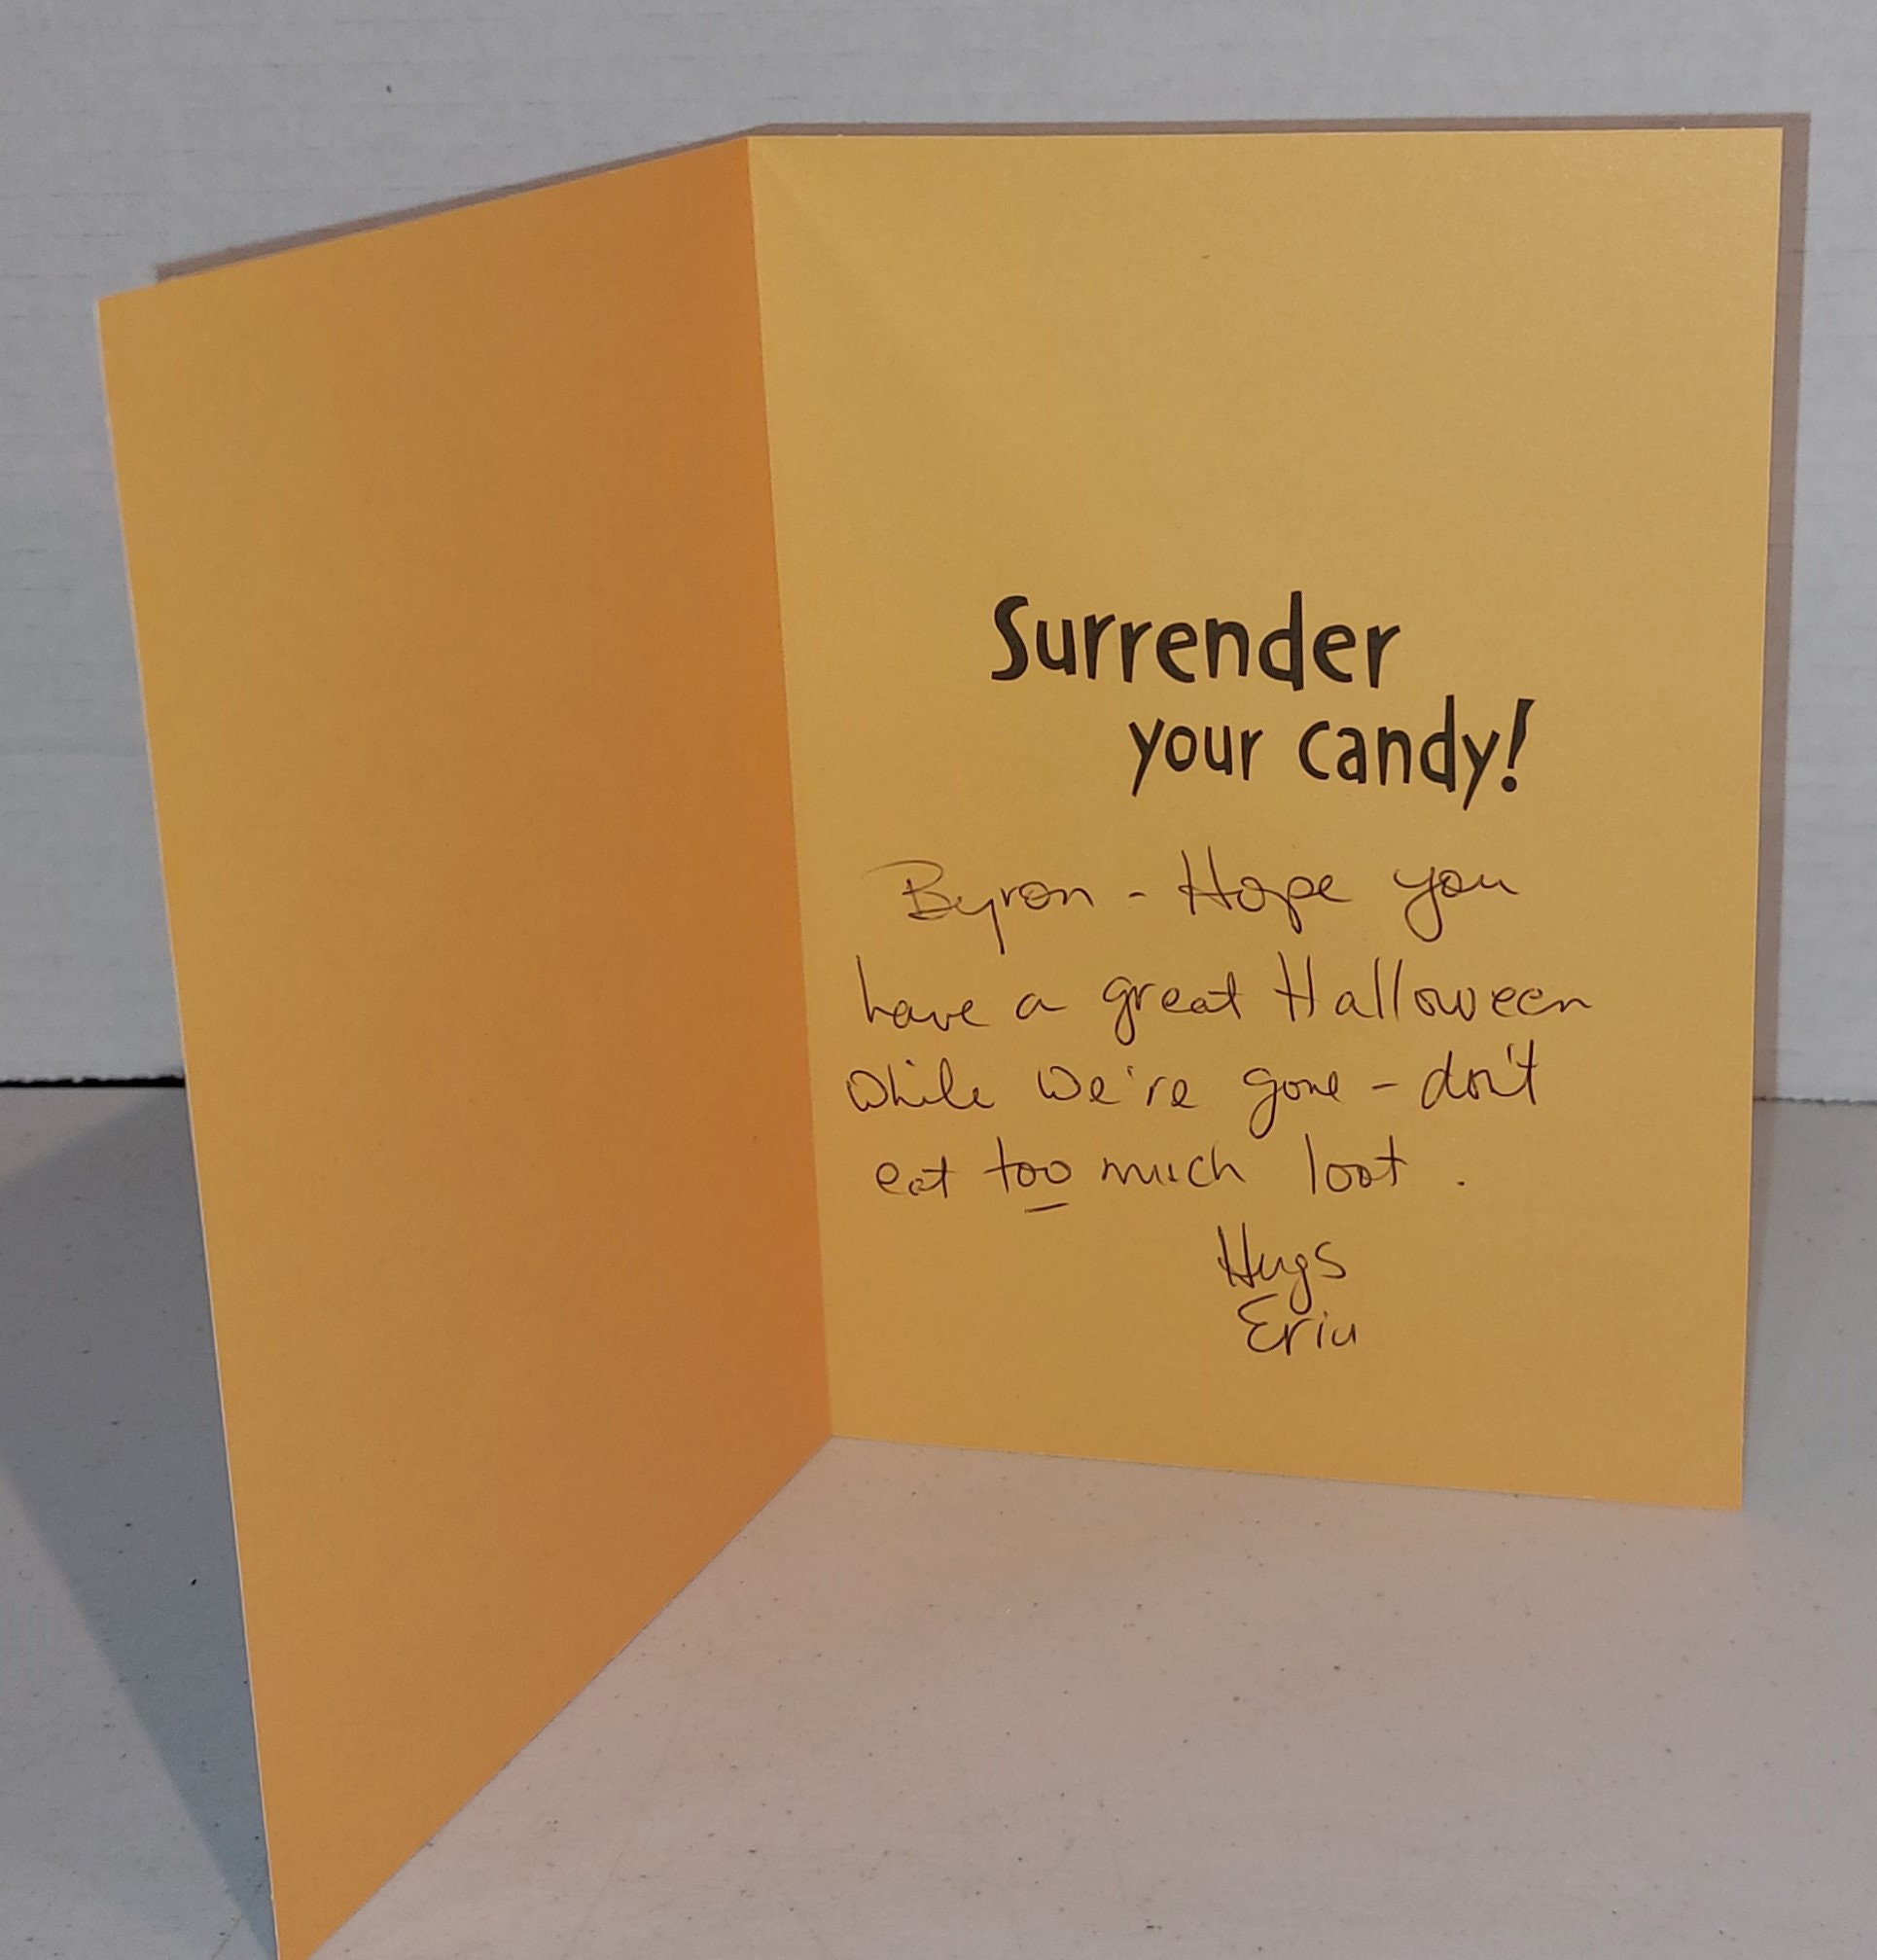 Surrender
your candy!
Byron - Hope you
have a great Halloween
while we're gone - don't
eat too much loot.
Hugs
Erin